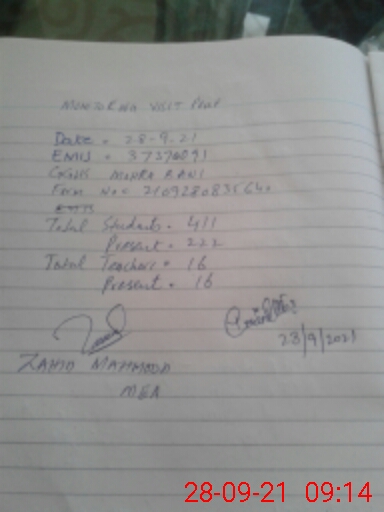 MONITORING VISIT PROF
Date = 28-9-21
EMIS = 37376091
GGHS MOHRA BANI
Form No = 2109280835640
Total Students = 411
Present = 222
Total Teachers = 16
Present = 16
28/9/2021
ZAHID MAHMOOD
MEA
28-09-21 09:14